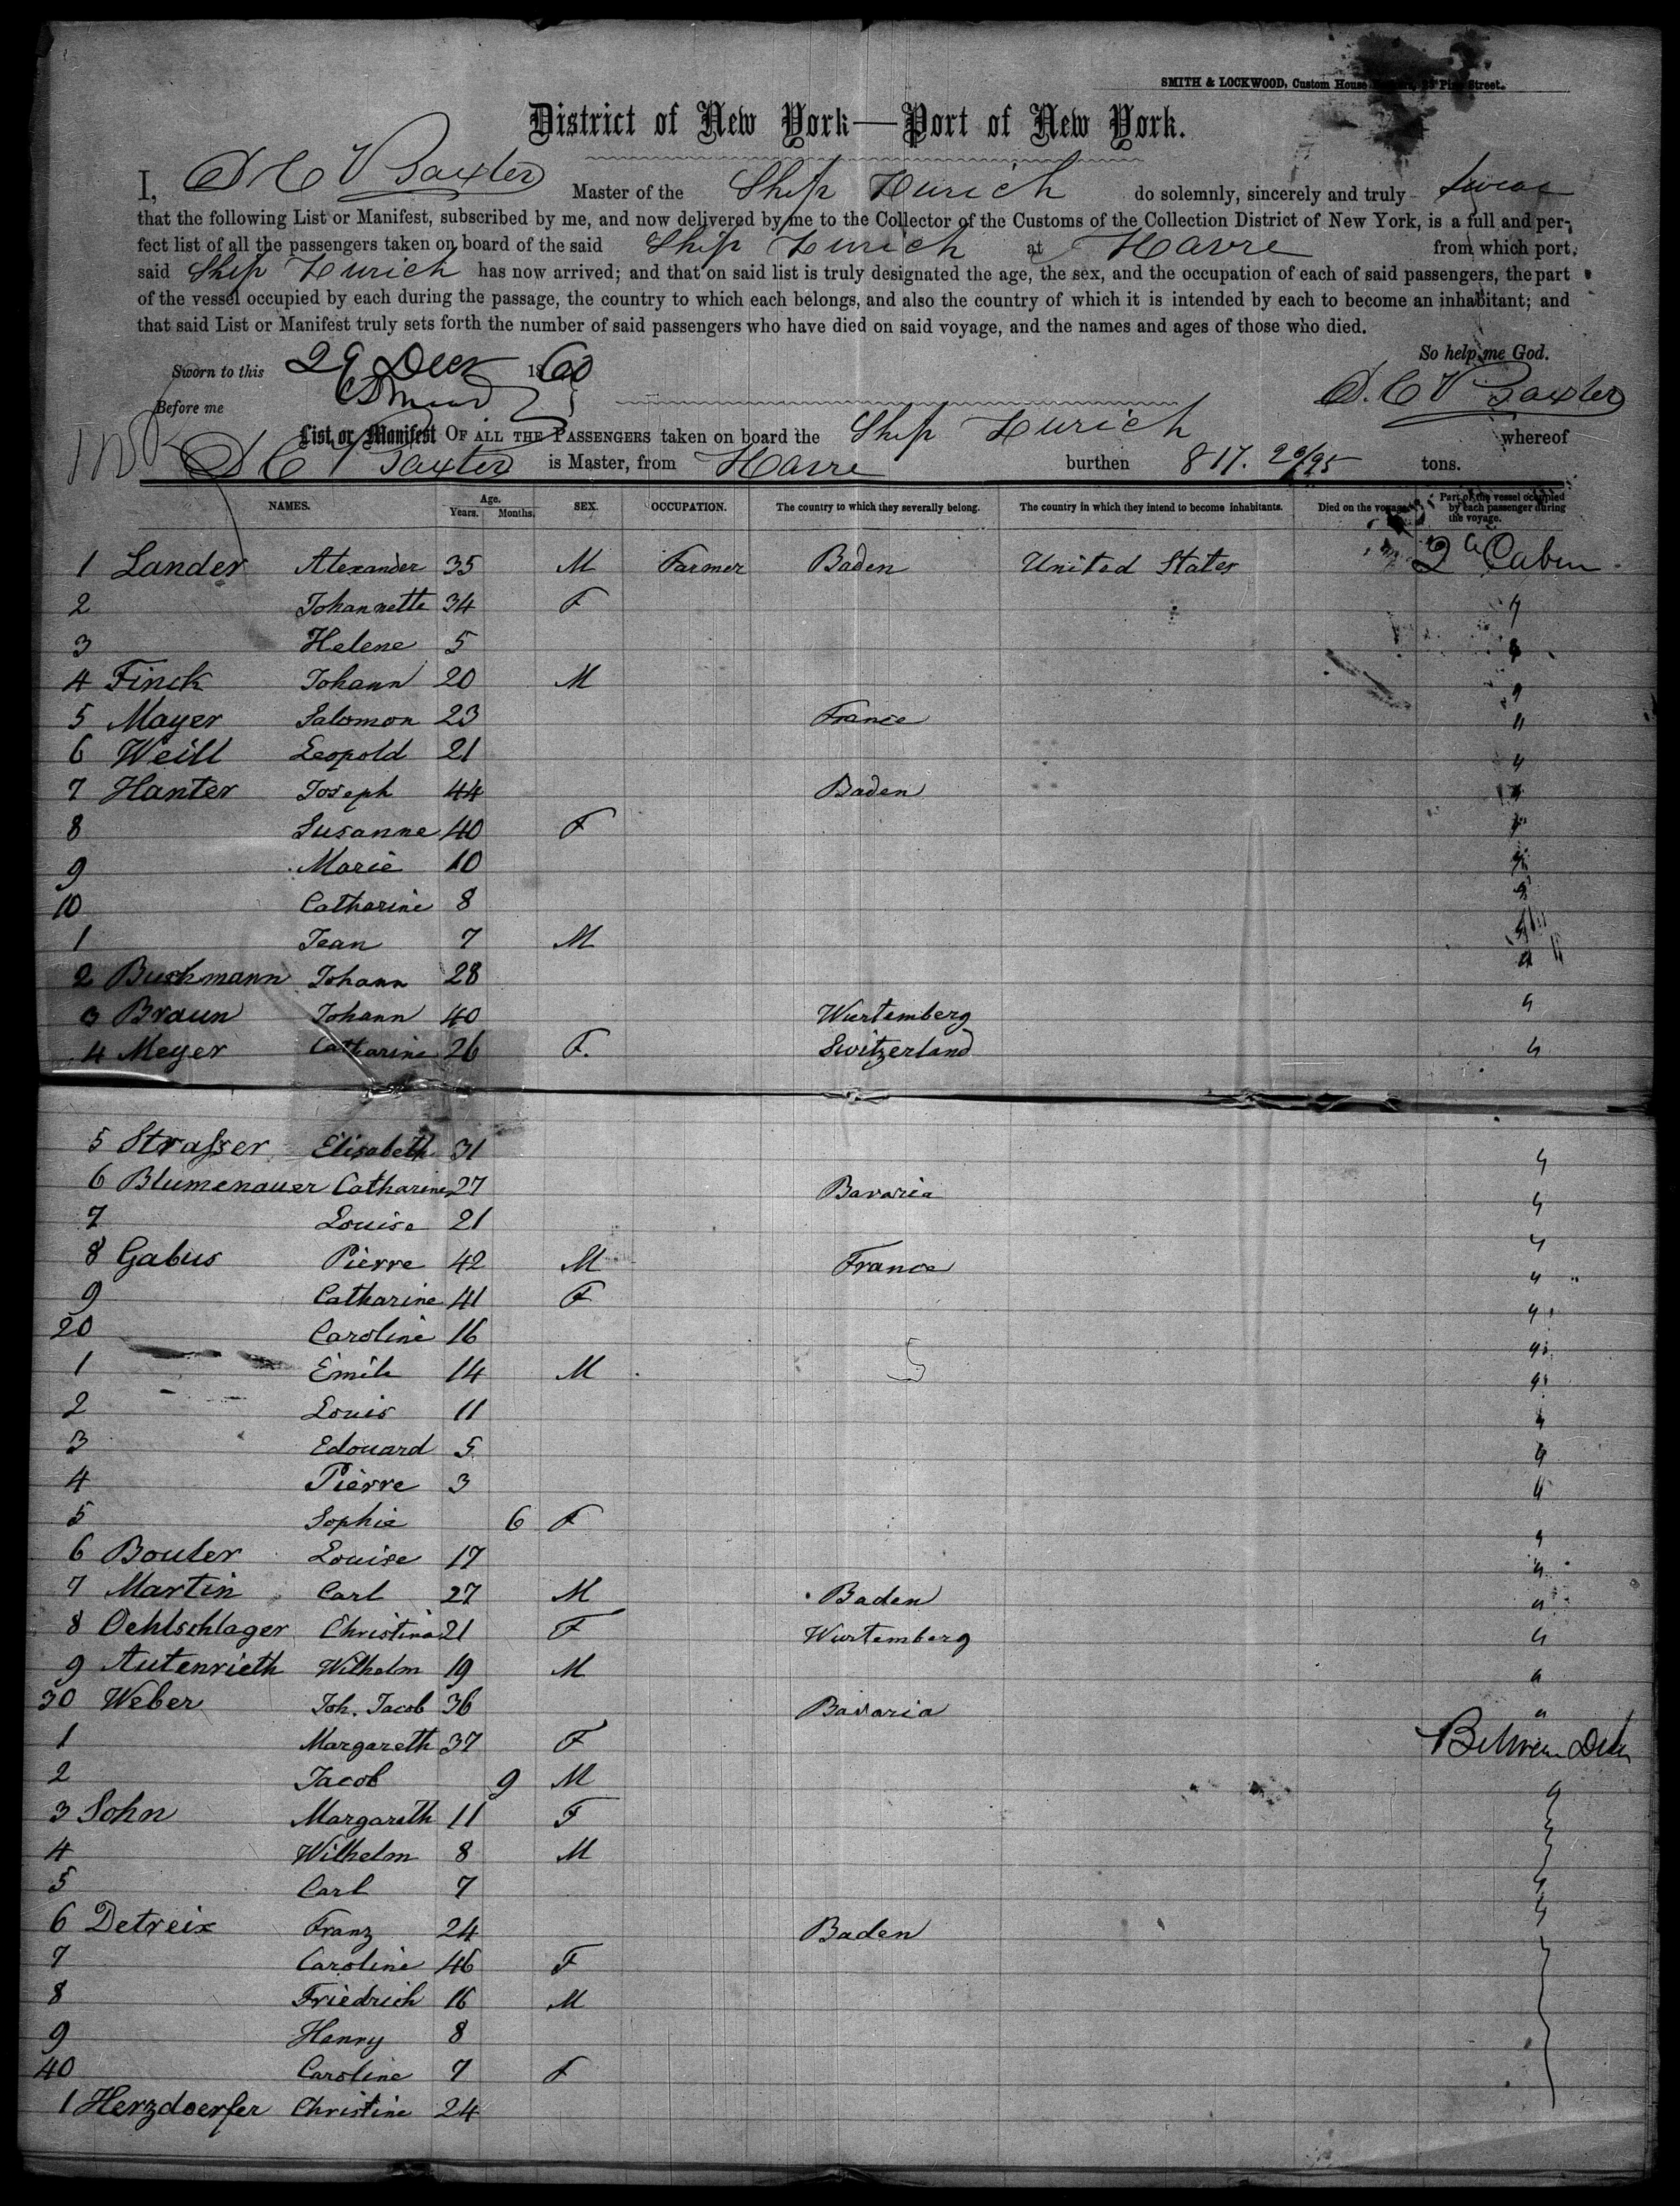 SMITH & LOCKWOOD, Custom House Pine Street.
District of New York—Port of New York.
I, D C V Baxter Master of the Ship Zurich do solemnly, sincerely and truly swear
that the following List or Manifest, subscribed by me, and now delivered by me to the Collector of the Customs of the Collection District of New York, is a full and per-
fect list of all the passengers taken on board of the said Ship Zurich at Havre from which port,
said Ship Zurich has now arrived; and that on said list is truly designated the age, the sex, and the occupation of each of said passengers, the part
of the vessel occupied by each during the passage, the country to which each belongs, and also the country of which it is intended by each to become an inhabitant; and
that said List or Manifest truly sets forth the number of said passengers who have died on said voyage, and the names and ages of those who died.
So help me God.
Sworn to this 29 Decr 1860
Before me D. C V Baxter
List or Manifest OF ALL THE PASSENGERS taken on board the Ship Zurich whereof
D C V Baxter is Master, from Havre burthen 817. 20/95 tons.
NAMES. Age. Years. Months. SEX. OCCUPATION. The country to which they severally belong. The country in which they intend to become inhabitants. Died on the voyage. Part of the vessel occupied by each passenger during the voyage.
1 Lander Alexander 35 M Farmer Baden United States 2d Cabin
2 Johannette 34 F "
3 Helene 5 "
4 Finck Johann 20 M "
5 Mayer Salomon 23 France "
6 Weill Leopold 21 "
7 Hanter Joseph 44 Baden "
8 Susanne 40 F "
9 Marie 10 "
10 Catharine 8 "
1 Jean 7 M "
2 Buschmann Johann 28 "
3 Braun Johann 40 Wurtemberg "
4 Meyer Catharine 26 F. Switzerland "
5 Strasser Elisabeth 31 "
6 Blumenauer Catharine 27 Bavaria "
7 Louise 21 "
8 Gabus Pierre 42 M France "
9 Catharine 41 F "
20 Caroline 16 "
1 Emile 14 M "
2 Louis 11 "
3 Edouard 5 "
4 Pierre 3 "
5 Sophie 6 F "
6 Bouler Louise 17 "
7 Martin Carl 27 M Baden "
8 Oehlschlager Christina 21 F Wurtemberg "
9 Autenrieth Wilhelm 19 M "
30 Weber Joh. Jacob 36 Bavaria "
1 Margareth 37 F Between Deck
2 Jacob 9 M "
3 Sohn Margareth 11 F "
4 Wilhelm 8 M "
5 Carl 7 "
6 Detreix Franz 24 Baden "
7 Caroline 46 F
8 Friedrich 16 M
9 Henry 8
40 Caroline 7 F
1 Herzdoerfer Christine 24